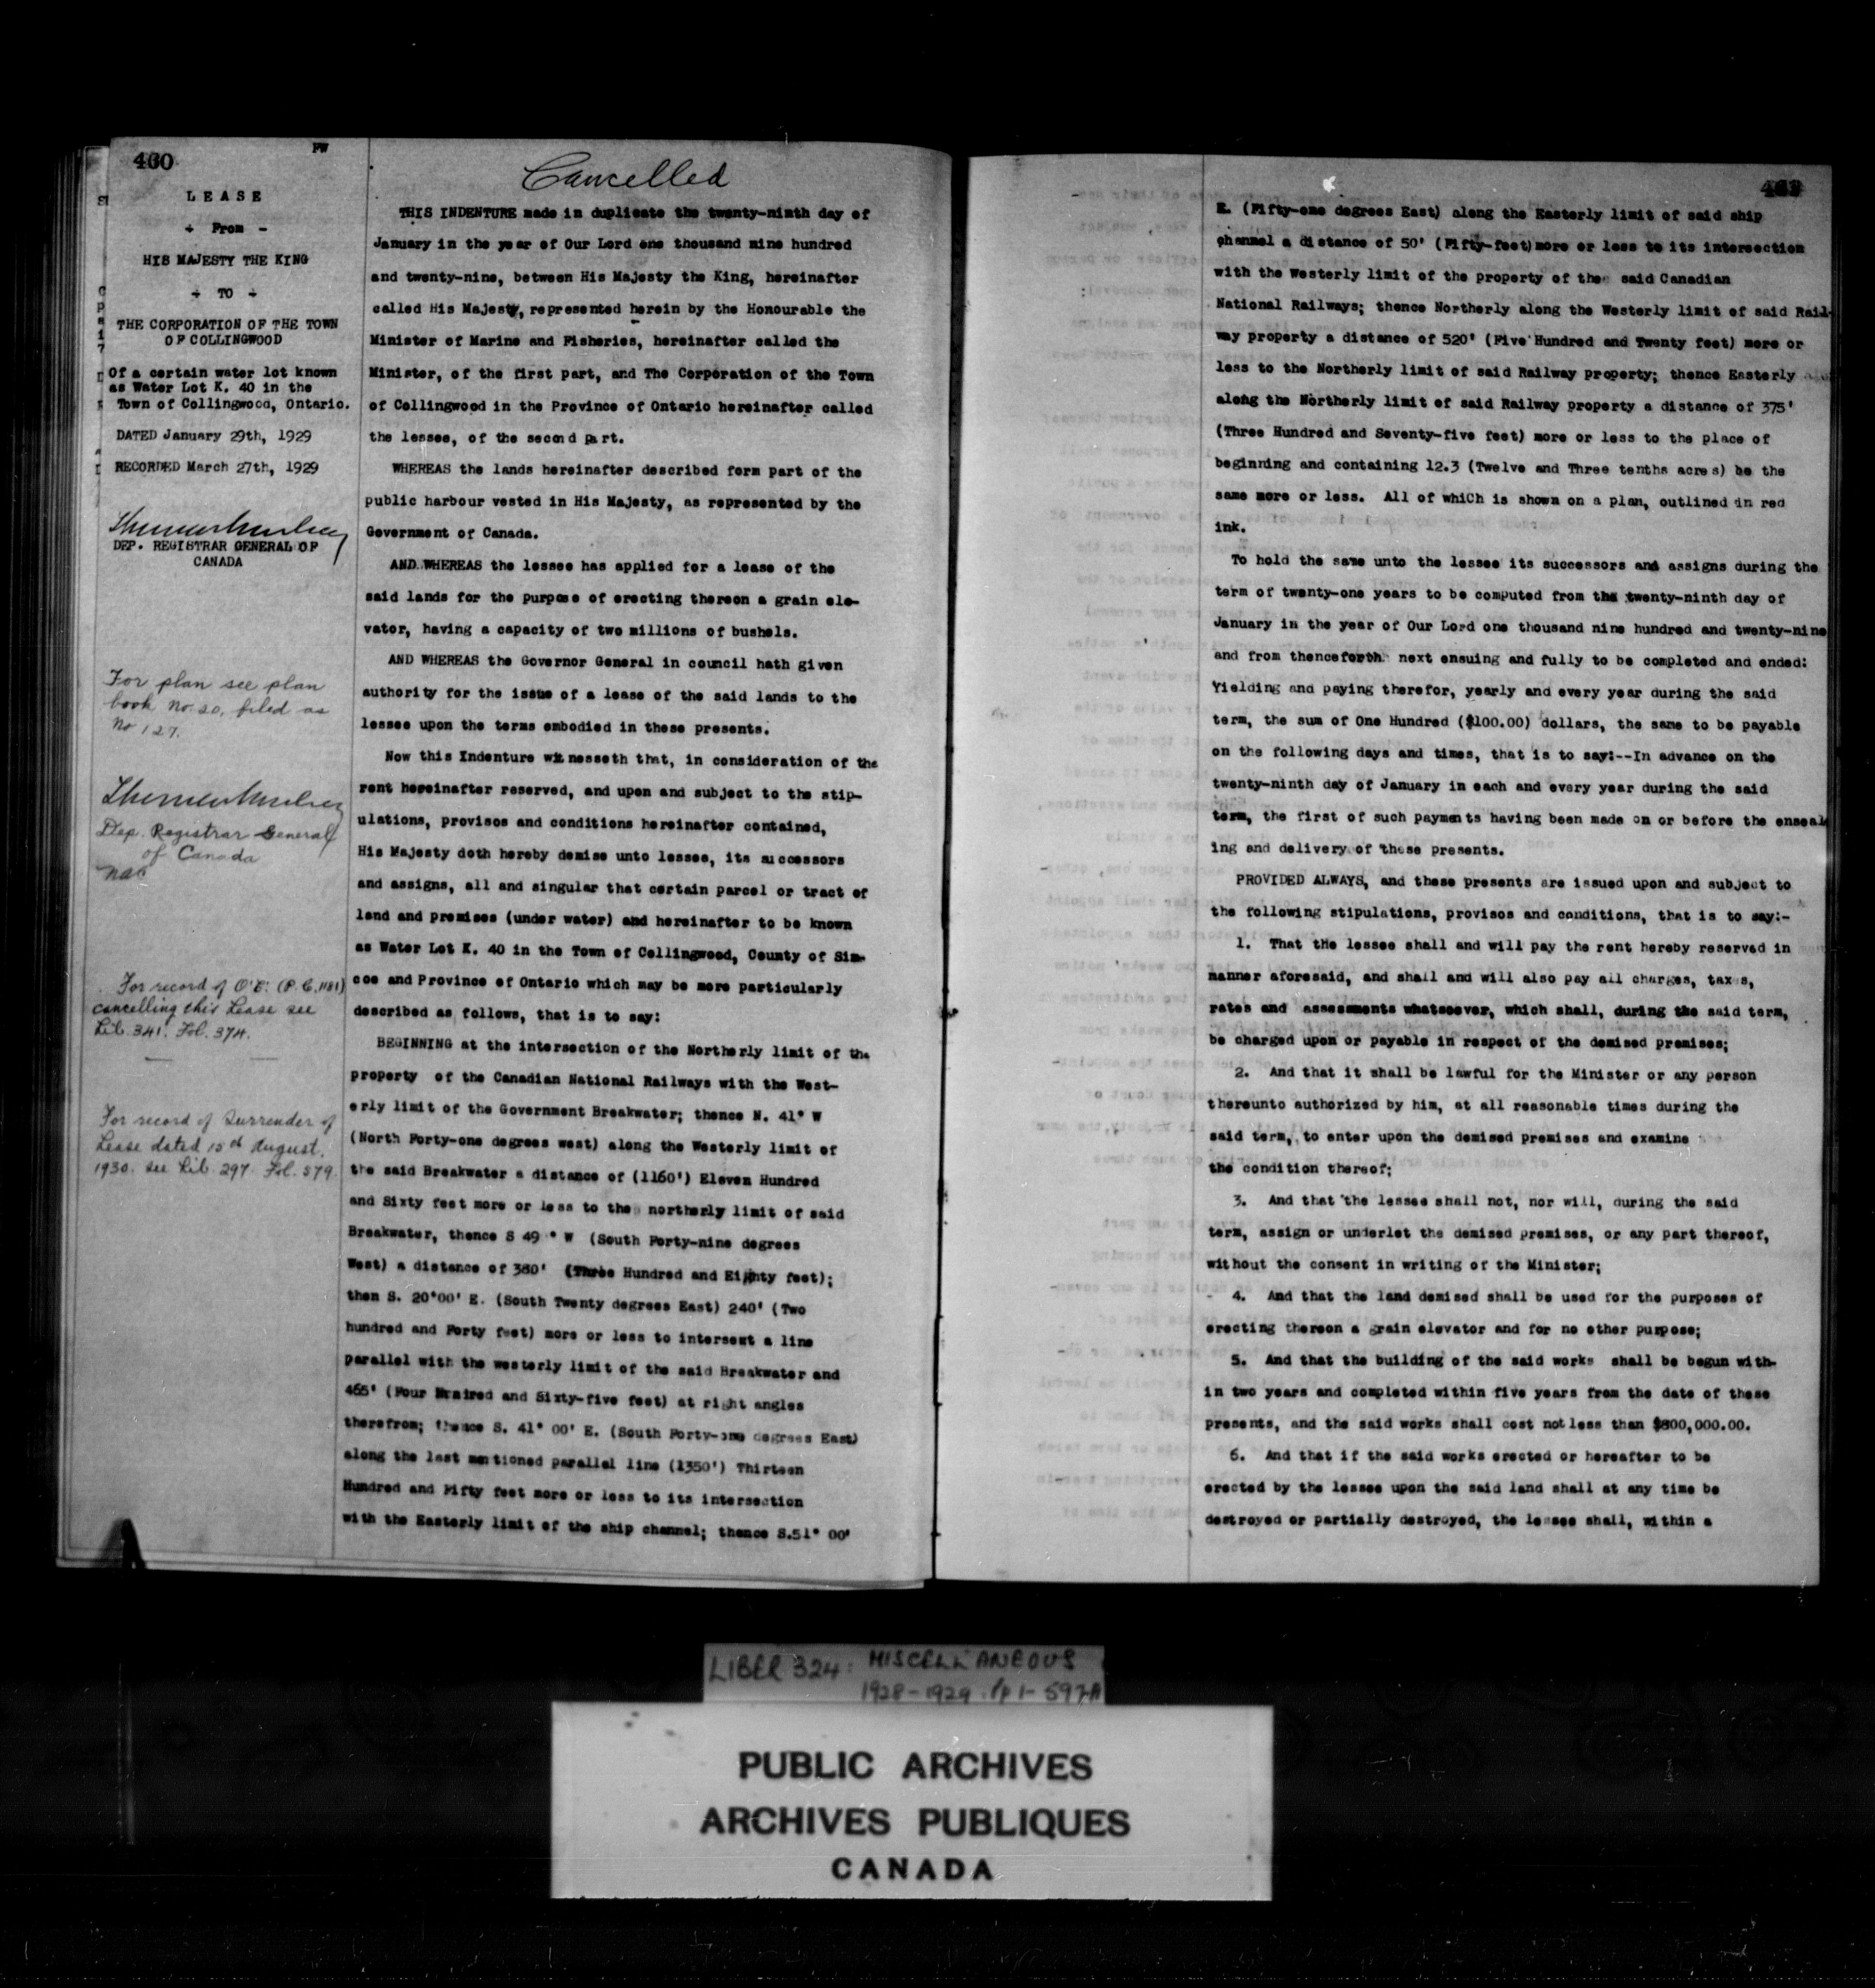 460
PW
LEASE
From -
HIS MAJESTY THE KING
TO
THE CORPORATION OF THE TOWN
OF COLLINGWOOD
Of a certain water lot known
as Water Lot K. 40 in the
Town of Collingwood, Ontario.
DATED January 29th, 1929
RECORDED March 27th, 1929
DEP. REGISTRAR GENERAL OF
CANADA
For plan see plan
book No. 20, filed as
No 127.
Dep. Registrar General
of Canada
For record of O.C. (P.C. 1181)
cancelling this Lease see
Lib. 341. Fol. 374.
For record of Surrender of
Lease dated 15th August,
1930. see Lib. 297. Fol. 579.
Cancelled
THIS INDENTURE made in duplicate the twenty-ninth day of
January in the year of Our Lord one thousand nine hundred
and twenty-nine, between His Majesty the King, hereinafter
called His Majesty, represented herein by the Honourable the
Minister of Marine and Fisheries, hereinafter called the
Minister, of the first part, and The Corporation of the Town
of Collingwood in the Province of Ontario hereinafter called
the lessee, of the second part.
WHEREAS the lands hereinafter described form part of the
public harbour vested in His Majesty, as represented by the
Government of Canada.
AND WHEREAS the lessee has applied for a lease of the
said lands for the purpose of erecting thereon a grain ele-
vator, having a capacity of two millions of bushels.
AND WHEREAS the Governor General in council hath given
authority for the issue of a lease of the said lands to the
lessee upon the terms embodied in these presents.
Now this Indenture witnesseth that, in consideration of the
rent hereinafter reserved, and upon and subject to the stip-
ulations, provisos and conditions hereinafter contained,
His Majesty doth hereby demise unto lessee, its successors
and assigns, all and singular that certain parcel or tract of
land and premises (under water) and hereinafter to be known
as Water Lot K. 40 in the Town of Collingwood, County of Sim-
coe and Province of Ontario which may be more particularly
described as follows, that is to say:
BEGINNING at the intersection of the Northerly limit of the
property of the Canadian National Railways with the West-
erly limit of the Government Breakwater; thence N. 41° W
(North Forty-one degrees west) along the Westerly limit of
the said Breakwater a distance of (1160') Eleven Hundred
and Sixty feet more or less to the northerly limit of said
Breakwater, thence S 49 ° W (South Forty-nine degrees
West) a distance of 380' (Three Hundred and Eighty feet);
then S. 20°00' E. (South Twenty degrees East) 240' (Two
hundred and Forty feet) more or less to intersect a line
parallel with the westerly limit of the said Breakwater and
465' (Four Hundred and Sixty-five feet) at right angles
therefrom; thence S. 41° 00' E. (South Forty-one degrees East)
along the last mentioned parallel line (1350') Thirteen
Hundred and Fifty feet more or less to its intersection
with the Easterly limit of the ship channel; thence S.51° 00'
E. (Fifty-one degrees East) along the Easterly limit of said ship
channel a distance of 50' (Fifty-feet) more or less to its intersection
with the Westerly limit of the property of the said Canadian
National Railways; thence Northerly along the Westerly limit of said Rail-
way property a distance of 520' (Five Hundred and Twenty feet) more or
less to the Northerly limit of said Railway property; thence Easterly
along the Northerly limit of said Railway property a distance of 375'
(Three Hundred and Seventy-five feet) more or less to the place of
beginning and containing 12.3 (Twelve and Three tenths acres) be the
same more or less. All of which is shown on a plan, outlined in red
ink.
To hold the same unto the lessee its successors and assigns during the
term of twenty-one years to be computed from the twenty-ninth day of
January in the year of Our Lord one thousand nine hundred and twenty-nine
and from thenceforth next ensuing and fully to be completed and ended:
Yielding and paying therefor, yearly and every year during the said
term, the sum of One Hundred ($100.00) dollars, the same to be payable
on the following days and times, that is to say:--In advance on the
twenty-ninth day of January in each and every year during the said
term, the first of such payments having been made on or before the enseal-
ing and delivery of these presents.
PROVIDED ALWAYS, and these presents are issued upon and subject to
the following stipulations, provisos and conditions, that is to say:-
1. That the lessee shall and will pay the rent hereby reserved in
manner aforesaid, and shall and will also pay all charges, taxes,
rates and assessments whatsoever, which shall, during the said term,
be charged upon or payable in respect of the demised premises;
2. And that it shall be lawful for the Minister or any person
thereunto authorized by him, at all reasonable times during the
said term, to enter upon the demised premises and examine
the condition thereof;
3. And that the lessee shall not, nor will, during the said
term, assign or underlet the demised premises, or any part thereof,
without the consent in writing of the Minister;
4. And that the land demised shall be used for the purposes of
erecting thereon a grain elevator and for no other purpose;
5. And that the building of the said works shall be begun with-
in two years and completed within five years from the date of these
presents, and the said works shall cost not less than $800,000.00.
6. And that if the said works erected or hereafter to be
erected by the lessee upon the said land shall at any time be
destroyed or partially destroyed, the lessee shall, within a
LIBER 324: MISCELLANEOUS
1928-1929. pp 1-597A
PUBLIC ARCHIVES
ARCHIVES PUBLIQUES
CANADA